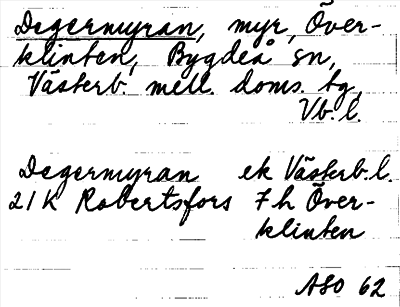 Degermyran, myr, Över-
klinten, Bygdeå sn,
Västerb. mell. doms. tg,
Vb. l.
Degermyran ek Västerb. l.
21K Robertsfors 7h Över-
klinten
ASO 62